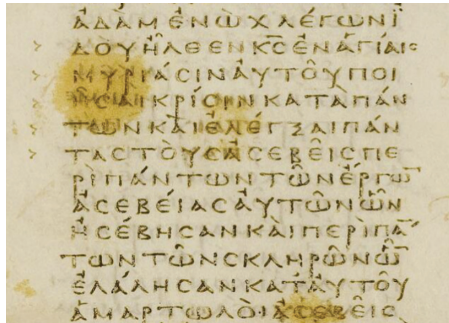 ἀδὰμ ἑνὼχ λέγωνϊ
δοὺ ἦλθενκ̅ϲ̅ἐνἁγίαιϲ
μυριάϲιναὐτοῦποι
ῆϲαικρίϲινκαταπάν
τωνκαὶἐλέγξαιπάν
ταϲτοὺϲἀϲεβεῖϲπε
ρὶπάντωντῶνἔργω̅
ἀϲεβείαϲαὐτῶνὧν
ἠϲέβηϲανκαὶπερὶπα̅
τωντῶνϲκληρῶνὧ̅
ἐλάληϲανκατ᾽αὐτοῦ
ἁμαρτωλοὶἀϲεβεῖϲ